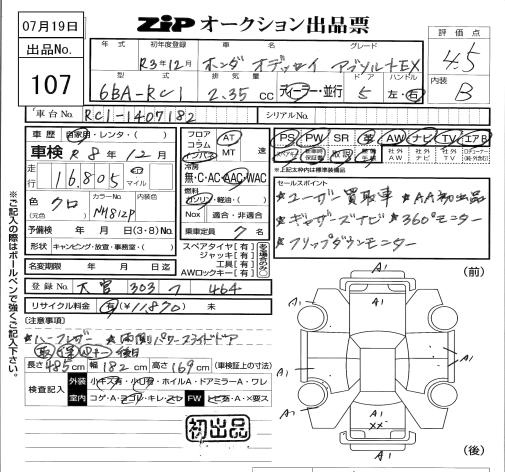 07月19日
ZIP オークション出品票
出品No.
107
年 式
初年度登録
車 名
グレード
評価点
R3年12月
ホンダ オデッセイ アブソルートEX
4.5
型 式
排 気 量
ド ア
ハンドル
内装
6BA-RC1
2.35 cc
ディーラー・並行
5
左・右
B
車台No.
RC1-1407182
シリアルNo.
車 歴
自家用・レンタ・( )
車検 R 8年 12月
走行
16,805
km
マイル
色
(元色)
クロ
カラーNo.
NH812P
予備検 年 月 日(3・8)No.
形状 キャンピング・放宣・事務室・( )
名変期限 年 月 日迄
登録No. 大宮 303 つ 464
リサイクル料金 有 ¥11,870 未
フロア
コラム
インパネ
AT
MT
速
冷房
無・C・AC・AAC・WAC
燃料
ガソリン・軽油・( )
Nox 適合・非適合
乗車定員 7 名
スペアタイヤ[有]
ジャッキ[有]
工具[有]
AWロックキー[有]
PS PW SR 革 AW ナビ TV エアB
※上記太枠内は標準装備品
セールスポイント
★ユーザー買取車 ★AA初出品
★ギャザーズナビ ★360°モニター
★フリップダウンモニター
(注意事項)
★両側パワースライドドア
取 後日
長さ 485cm 幅 182cm 高さ 169cm (車検証上の寸法)
検査記入
外装
小キズ有・小凹有・ホイルA・ドアミラーA・ワレ
室内
コゲ・A・ヨゴレ・キレ・スレ
FW
トビ石・A・×要ス
初出品
(前)
A1
A1
A1
A1
A1
A1
A1
A1
××
A1
(後)
※ご記入の際はボールペンで強くご記入下さい。